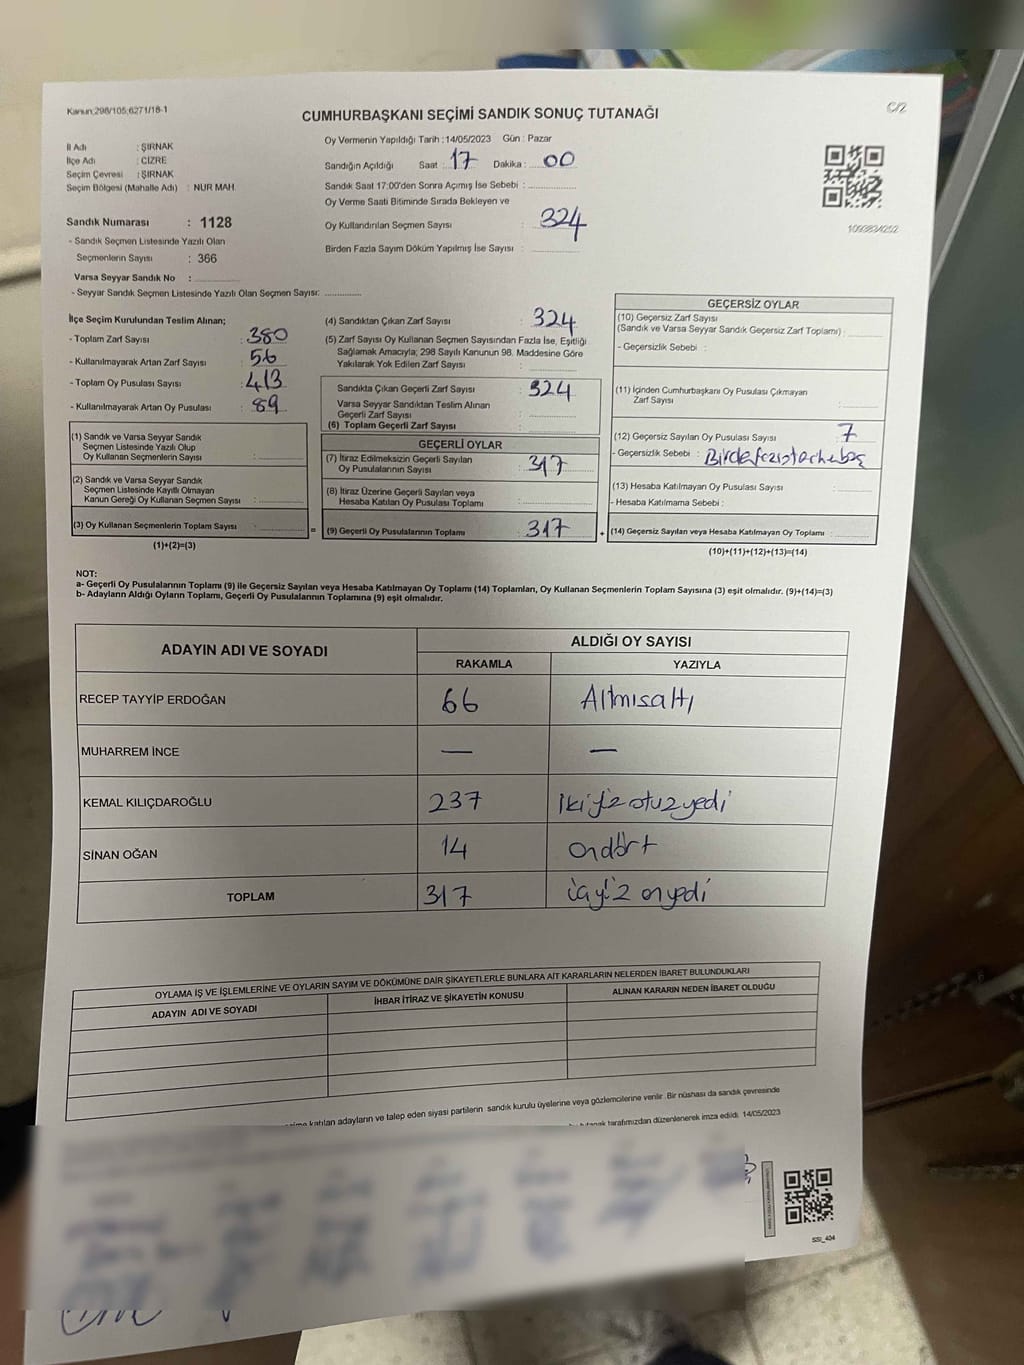 Kanun:298/105;6271/18-1
C/2
CUMHURBAŞKANI SEÇİMİ SANDIK SONUÇ TUTANAĞI
İl Adı : ŞIRNAK
İlçe Adı : CİZRE
Seçim Çevresi : ŞIRNAK
Seçim Bölgesi (Mahalle Adı) : NUR MAH.
Sandık Numarası : 1128
- Sandık Seçmen Listesinde Yazılı Olan
Seçmenlerin Sayısı : 366
Varsa Seyyar Sandık No :
- Seyyar Sandık Seçmen Listesinde Yazılı Olan Seçmen Sayısı:
Oy Vermenin Yapıldığı Tarih : 14/05/2023 Gün : Pazar
Sandığın Açıldığı Saat : 17 Dakika : 00
Sandık Saat 17:00'den Sonra Açımış İse Sebebi :
Oy Verme Saati Bitiminde Sırada Bekleyen ve
Oy Kullandırılan Seçmen Sayısı : 324
Birden Fazla Sayım Döküm Yapılmış İse Sayısı :
1093834252
İlçe Seçim Kurulundan Teslim Alınan;
- Toplam Zarf Sayısı : 380
- Kullanılmayarak Artan Zarf Sayısı : 56
- Toplam Oy Pusulası Sayısı : 413
- Kullanılmayarak Artan Oy Pusulası : 89
(1) Sandık ve Varsa Seyyar Sandık
Seçmen Listesinde Yazılı Olup
Oy Kullanan Seçmenlerin Sayısı :
(2) Sandık ve Varsa Seyyar Sandık
Seçmen Listesinde Kayıtlı Olmayan
Kanun Gereği Oy Kullanan Seçmen Sayısı :
(3) Oy Kullanan Seçmenlerin Toplam Sayısı : =
(1)+(2)=(3)
(4) Sandıktan Çıkan Zarf Sayısı : 324
(5) Zarf Sayısı Oy Kullanan Seçmen Sayısından Fazla İse, Eşitliği
Sağlamak Amacıyla; 298 Sayılı Kanunun 98. Maddesine Göre
Yakılarak Yok Edilen Zarf Sayısı :
Sandıkta Çıkan Geçerli Zarf Sayısı : 324
Varsa Seyyar Sandıktan Teslim Alınan
Geçerli Zarf Sayısı :
(6) Toplam Geçerli Zarf Sayısı :
GEÇERLİ OYLAR
(7) İtiraz Edilmeksizin Geçerli Sayılan
Oy Pusulalarının Sayısı : 317
(8) İtiraz Üzerine Geçerli Sayılan veya
Hesaba Katılan Oy Pusulası Toplamı :
(9) Geçerli Oy Pusulalarının Toplamı : 317 +
GEÇERSİZ OYLAR
(10) Geçersiz Zarf Sayısı
(Sandık ve Varsa Seyyar Sandık Geçersiz Zarf Toplamı) :
- Geçersizlik Sebebi :
(11) İçinden Cumhurbaşkanı Oy Pusulası Çıkmayan
Zarf Sayısı :
(12) Geçersiz Sayılan Oy Pusulası Sayısı : 7
- Geçersizlik Sebebi :
(13) Hesaba Katılmayan Oy Pusulası Sayısı :
- Hesaba Katılmama Sebebi :
(14) Geçersiz Sayılan veya Hesaba Katılmayan Oy Toplamı :
(10)+(11)+(12)+(13)=(14)
NOT:
a- Geçerli Oy Pusulalarının Toplamı (9) ile Geçersiz Sayılan veya Hesaba Katılmayan Oy Toplamı (14) Toplamları, Oy Kullanan Seçmenlerin Toplam Sayısına (3) eşit olmalıdır. (9)+(14)=(3)
b- Adayların Aldığı Oyların Toplamı, Geçerli Oy Pusulalarının Toplamına (9) eşit olmalıdır.
ADAYIN ADI VE SOYADI
ALDIĞI OY SAYISI
RAKAMLA YAZIYLA
RECEP TAYYİP ERDOĞAN 66 Altmışaltı
MUHARREM İNCE — —
KEMAL KILIÇDAROĞLU 237 ikiyüz otuzyedi
SİNAN OĞAN 14 ondört
TOPLAM 317 üçyüz onyedi
OYLAMA İŞ VE İŞLEMLERİNE VE OYLARIN SAYIM VE DÖKÜMÜNE DAİR ŞİKAYETLERLE BUNLARA AİT KARARLARIN NELERDEN İBARET BULUNDUKLARI
ADAYIN ADI VE SOYADI İHBAR İTİRAZ VE ŞİKAYETİN KONUSU ALINAN KARARIN NEDEN İBARET OLDUĞU
katılan adayların ve talep eden siyasi partilerin sandık kurulu üyelerine veya gözlemcilerine verilir. Bir nüshası da sandık çevresinde
tutanak tarafımızdan düzenlenerek imza edildi. 14/05/2023
SSİ_404